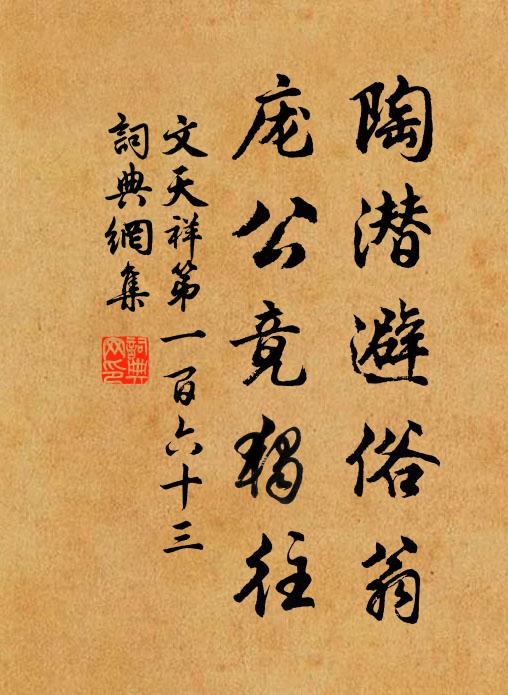 陶潜避俗翁
庞公竟独往
文天祥第一百六十三
詞典網集
詞典網印